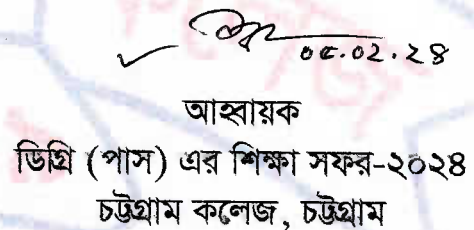 ০৫.০২.২৪
আহ্বায়ক
ডিগ্রি (পাস) এর শিক্ষা সফর-২০২৪
চট্টগ্রাম কলেজ, চট্টগ্রাম